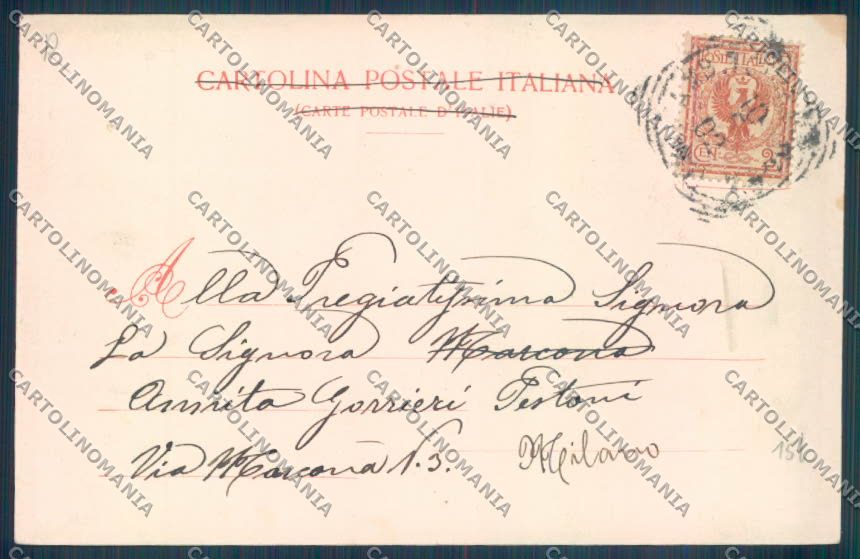 CARTOLINA POSTALE ITALIANA
(CARTE POSTALE D'ITALIE)
POSTE ITALIANE
CENT 2
Alla Pregiatissima Signora
La Signora Marcona
Annita Gorrieri Testoni
Via Marcona N. 3. Milano
151
CARTOLINOMANIA